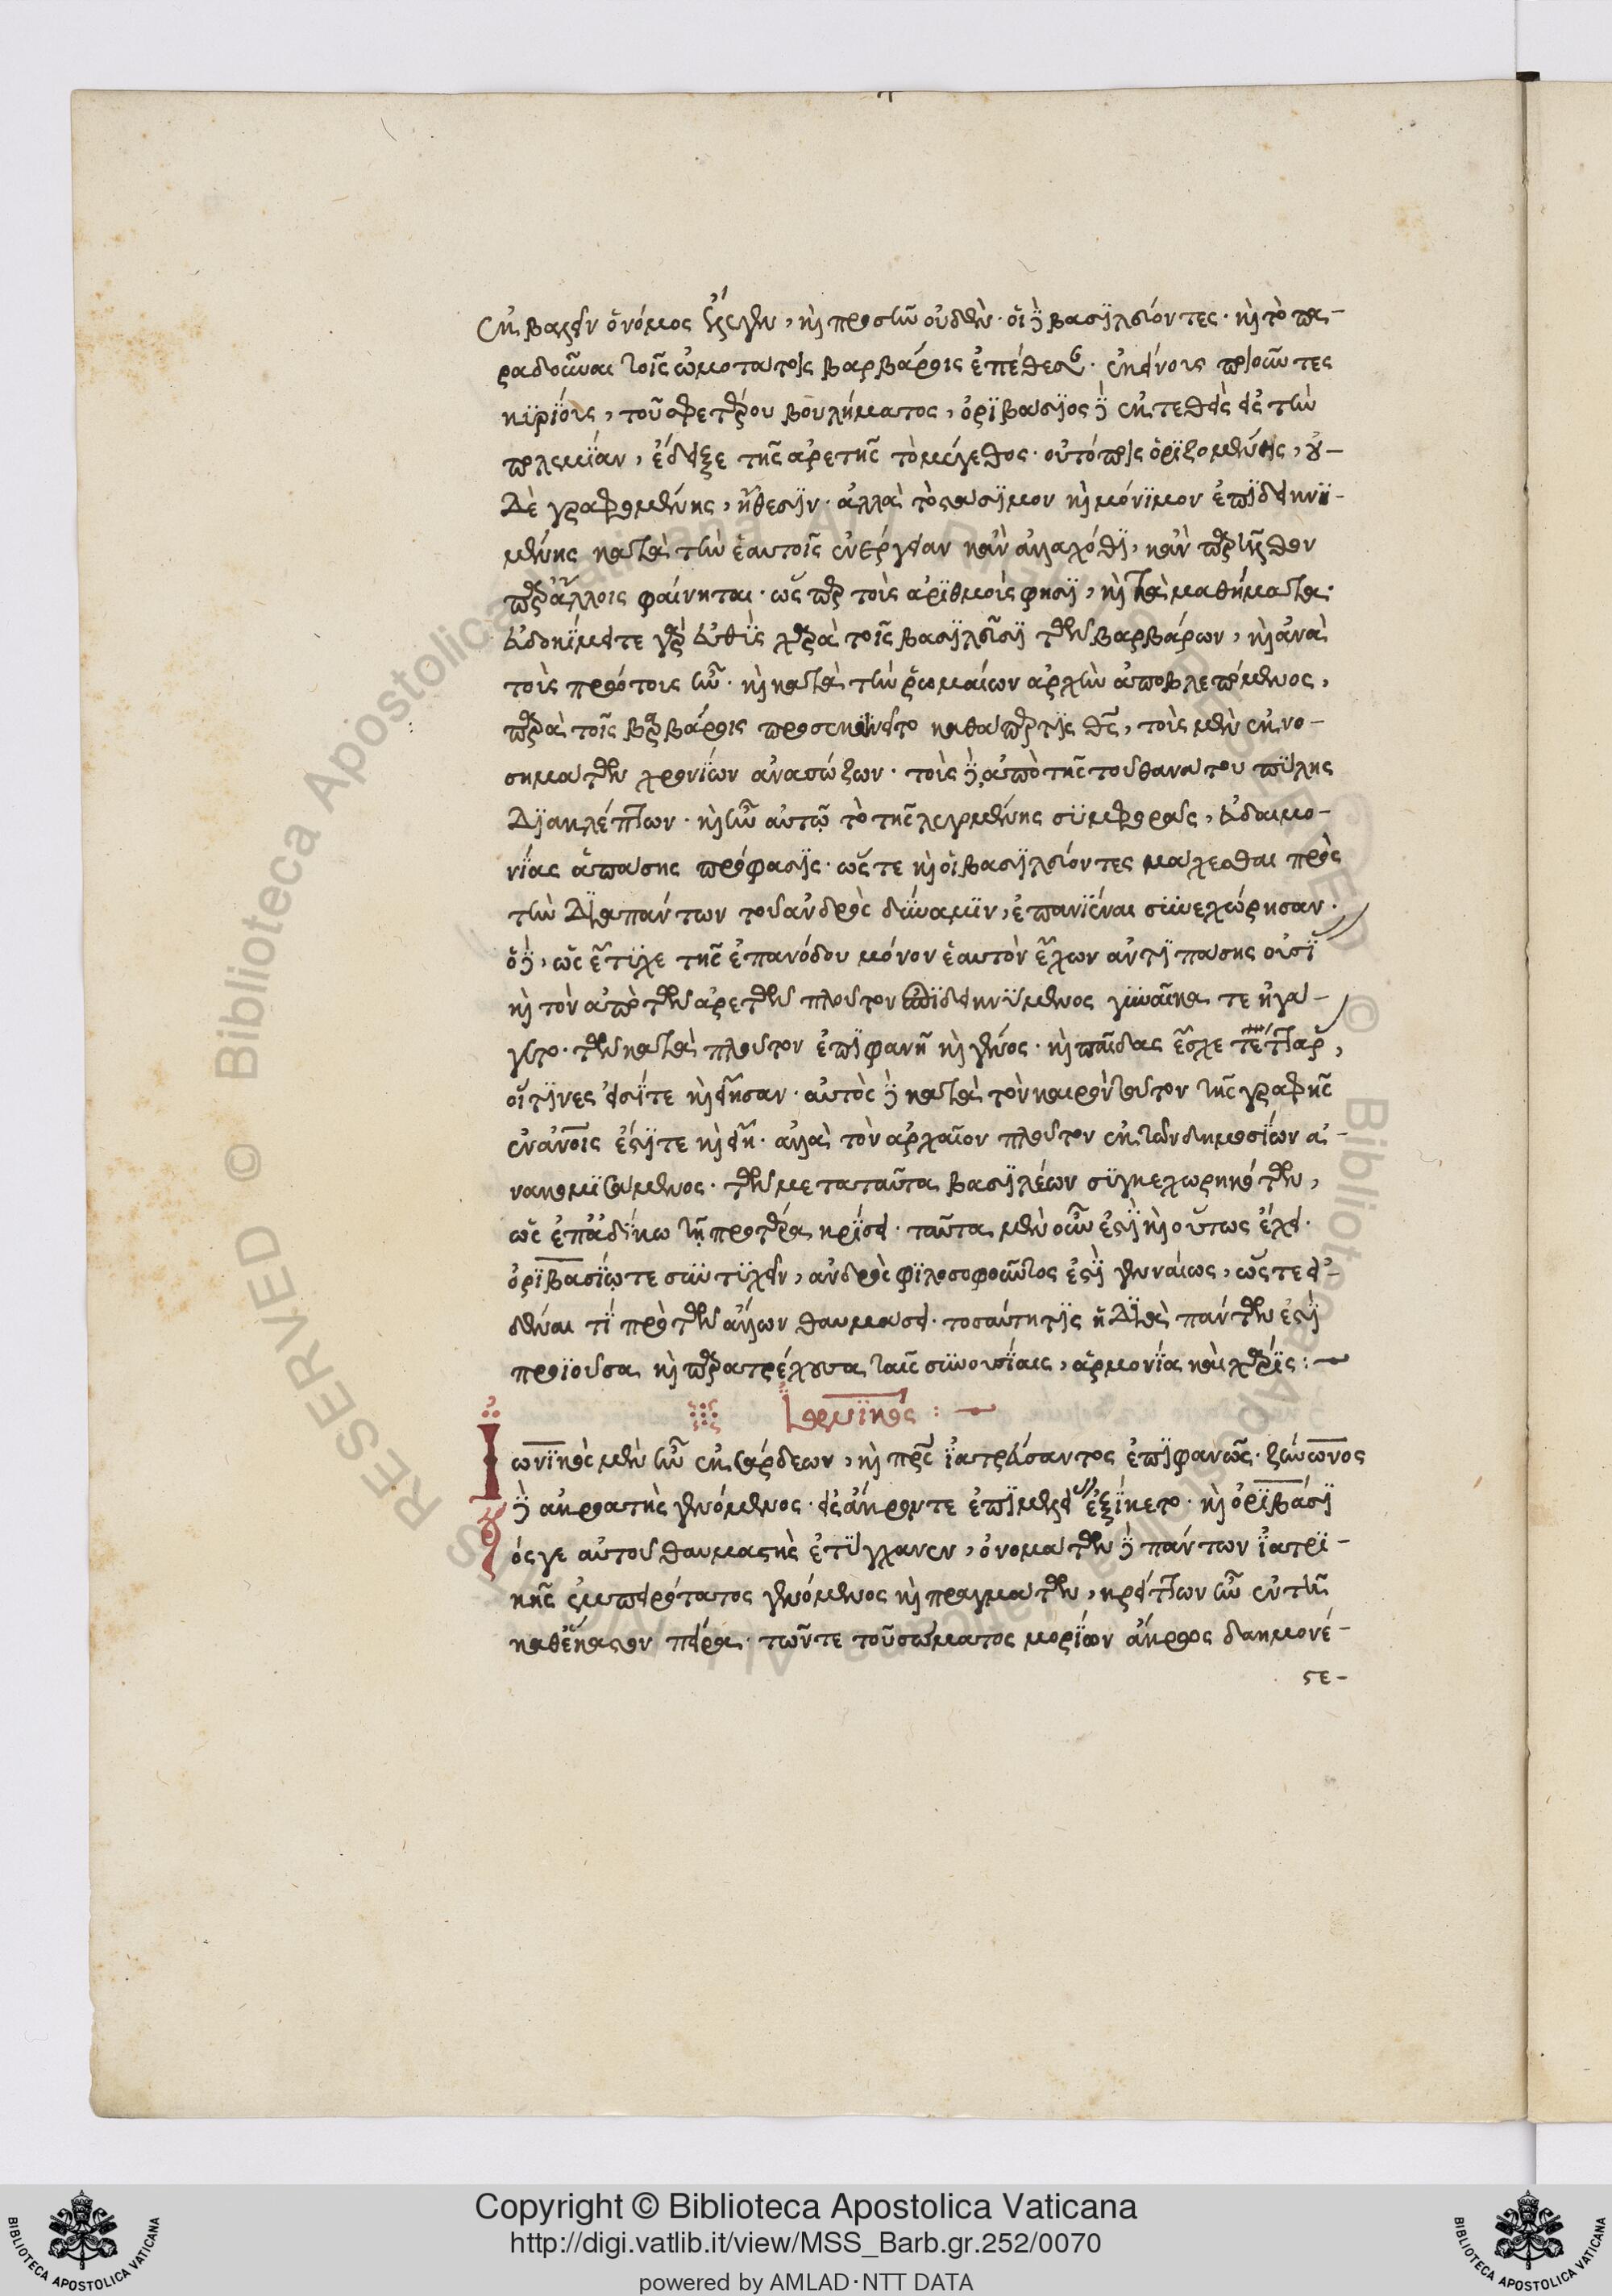 ἐκβαλεῖν ὁ νόμος ἐξεῖργεν, καὶ προσῆν οὐδέν· οἱ δὲ βασιλεύοντες· καὶ τὸ πα-
ραδοῦναι τοῖς ὠμοτάτοις βαρβάροις ἐπέθεσαν· ἐκείνους ποιοῦντες
κυρίους, τοῦ σφετέρου βουλήματος, ὀρϊβάσϊος δὲ ἐκτεθεὶς εἰς τὴν
πολεμίαν, ἔδειξε τῆς ἀρετῆς τὸ μέγεθος· οὐ τόποις ὁριζομένης, οὐ-
δὲ γραφομένης, ἤθεσιν· ἀλλὰ τὸ στάσιμον καὶ μόνιμον ἐπιδεικνυ-
μένης κατὰ τὴν ἑαυτοῖς ἐνέργειαν κἂν ἀλλαχόθι, κἂν
παρ' ἄλλοις φαίνηται· ὥσπερ τοὺς ἀριθμούς φησι, καὶ τὰ μαθήματα·
εὐδοκίμει τε γὰρ εὐθὺς παρὰ τοῖς βασιλεῦσι τῶν βαρβάρων, καὶ ἀνὰ
τοὺς πρώτους ἦν· καὶ κατὰ τὴν ῥωμαίων ἀρχὴν ἀποβλεπόμενος,
παρὰ τοῖς βαρβάροις προσεκυνεῖτο καθάπερ τις θεός, τοὺς μὲν ἐκ νο-
σημάτων χρονίων ἀνασώζων· τοὺς δὲ ἀπὸ τῆς τοῦ θανάτου πύλης
διακλέπτων· καὶ ἦν αὐτῷ τὸ τῆς λεγομένης συμφορᾶς, εὐδαιμο-
νίας ἁπάσης πρόφασις· ὥστε καὶ οἱ βασιλεύοντες μάχεσθαι πρὸς
τὴν διὰ πάντων τοῦ ἀνδρὸς δύναμιν, ἐπανιέναι συνεχώρησαν·
ὁ δὲ, ὡς ἔτυχε τῆς ἐπανόδου μόνον ἑαυτὸν ἔχων ἀντὶ πάσης οὐσί
καὶ τὸν ἀπὸ τῶν ἀρετῶν πλοῦτον ἐπιδεικνύμενος γυναῖκά τε ἠγά-
γετο· τῶν κατὰ πλοῦτον ἐπιφανῆ καὶ γένος· καὶ παῖδας ἔσχε τέτταρ,
οἵτινες εἰσί τε καὶ εἴησαν· αὐτὸς δὲ κατὰ τὸν καιρὸν τοῦτον τῆς γραφῆς
ἐν ἀνοῖς ἐστί τε καὶ εἴη· ἀλλὰ τὸν ἀρχαῖον πλοῦτον ἐκ τῶν δημοσίων ἀ-
νακομισάμενος· τῶν μετὰ ταῦτα βασιλέων συγκεχωρηκότων,
ὡς ἐπ' ἀδίκῳ τῇ προτέρᾳ κρίσει· ταῦτα μὲν οὖν ἐστὶ καὶ οὕτως ἔχει·
ὀρϊβασίῳ τε συντυχεῖν, ἀνδρὸς φιλοσοφοῦντος ἐστὶ γενναίως, ὥστε εἰ-
δέναι τί πρὸ τῶν ἄλλων θαυμάσει· τοσαύτη τις ἡ διὰ πάντων ἐστὶ
προϊοῦσα καὶ παρατρέχουσα ταῖς συνουσίαις, ἁρμονία καὶ χάρις:
ϊωνϊκός:
Ἰωνϊκὸς μὲν ἦν ἐκ σάρδεων, καὶ πρς ἰατρεύσαντος ἐπιφανῶς· ζήνωνος
δὲ ἀκροατὴς γενόμενος· εἰς ἄκρον τε ἐπιμελείας ἐξίκετο· καὶ ὀρϊβάσϊ
ός γε αὐτοῦ θαυμαστὴς ἐτύγχανεν, ὀνομάτων δὲ πάντων ἰατρι-
κῆς ἐμπειρότατος γενόμενος καὶ πραγμάτων, κρείττων ἦν ἐν τῇ
καθ' ἕκαστον πείρᾳ· τῶν τε τοῦ σώματος μορίων ἄκρως δαημονέ-
στε-